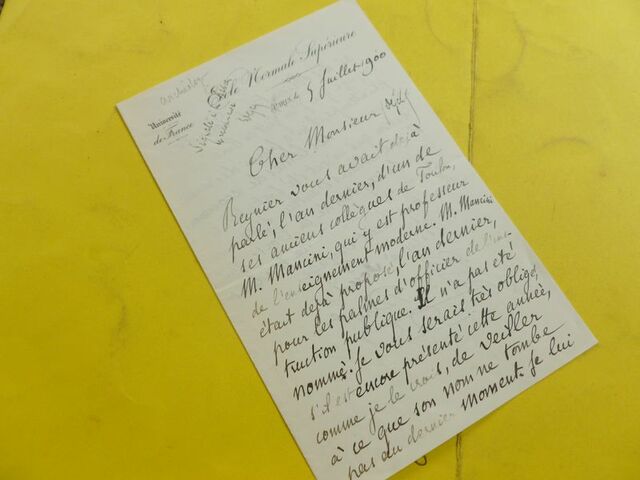 École Normale Supérieure
Université
de France
5 Juillet 1900
Cher Monsieur
Reynier vous avait déjà
parlé, l'an dernier, d'un de
ses anciens collègues de Toulon,
M. Mancini, qui y est professeur
de l'enseignement moderne. M. Mancini
était déjà proposé, l'an dernier,
pour les palmes d'officier de l'ins-
truction publique. Il n'a pas été
nommé. Je vous serais très obligé,
s'il est encore présenté cette année,
comme je le crois, de veiller
à ce que son nom ne tombe
pas au dernier moment. Je lui